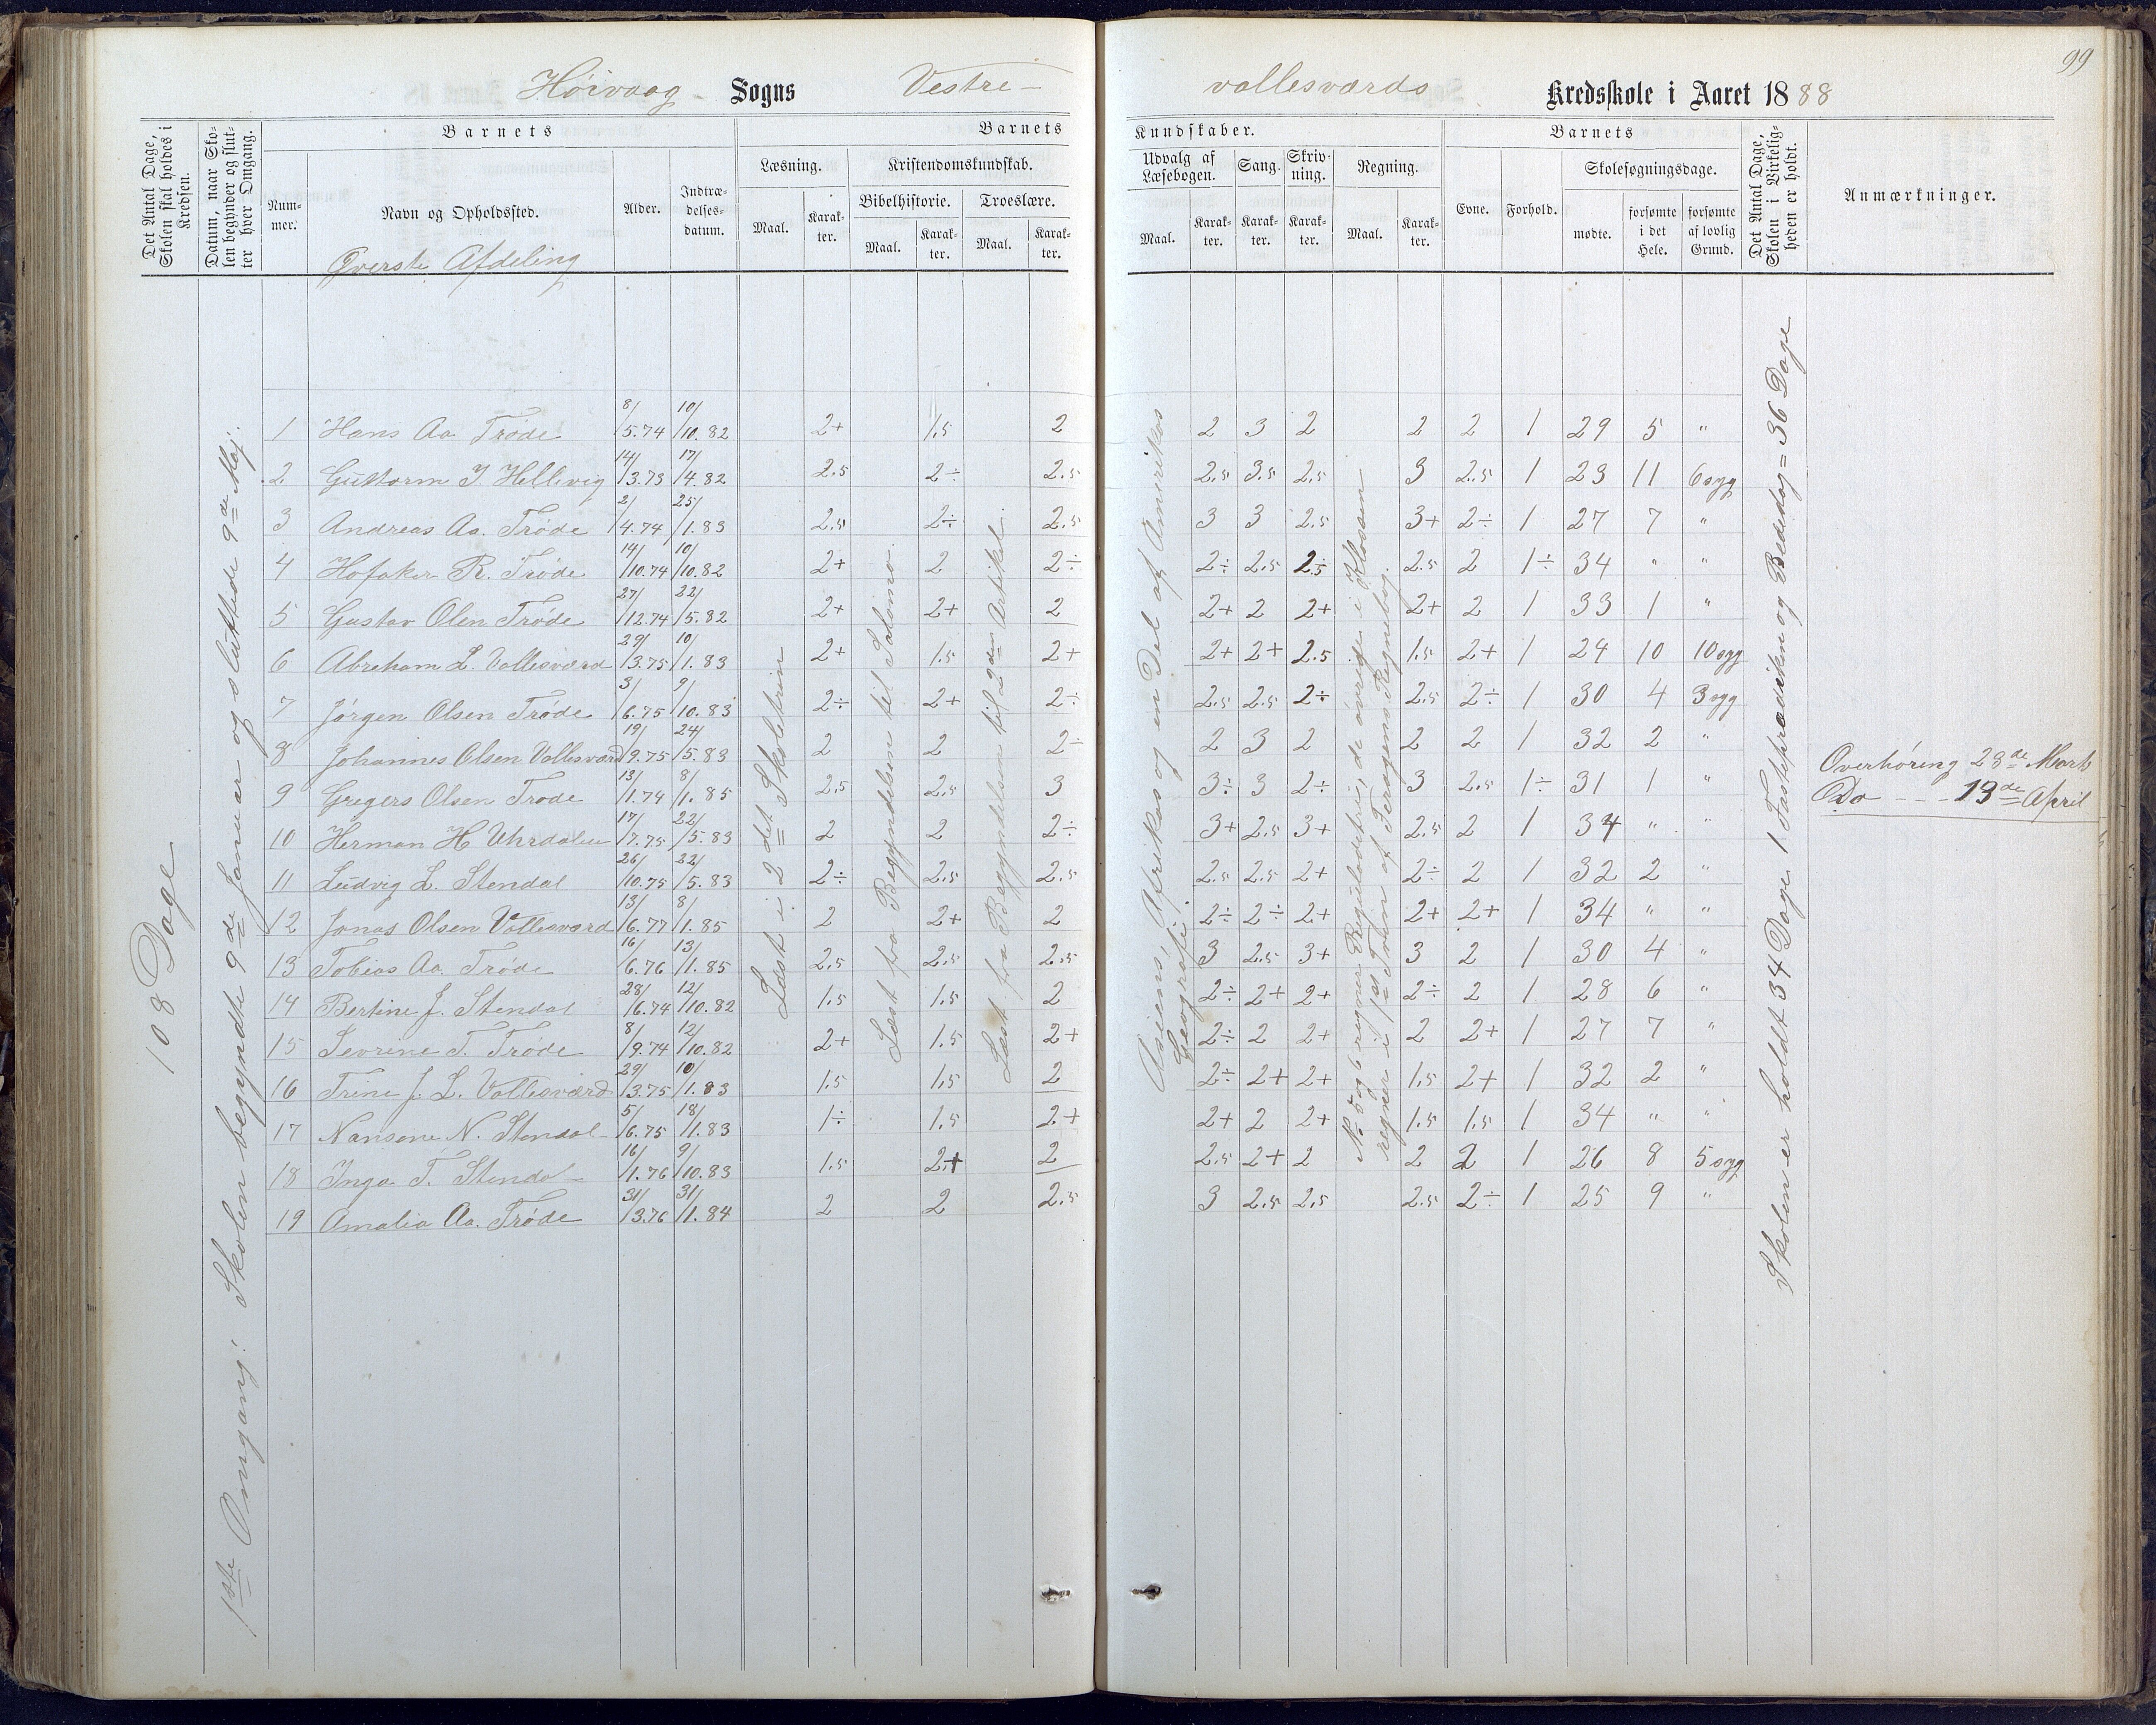 99
Höivaag Sogns Vestre – vallesværds Kredsskole i Aaret 1888
Det Antal Dage, Skolen skal holdes i Kredsen.
Datum, naar Skolen begynder og slutter hver Omgang.
Barnets
Nummer.
Navn og Opholdssted.
Alder.
Indtrædelsesdatum.
Barnets Kundskaber.
Læsning.
Maal. Karakter.
Kristendomskundskab.
Bibelhistorie. Troeslære.
Maal. Karakter. Maal. Karakter.
Udvalg af Læsebogen. Sang. Skrivning. Regning.
Maal. Karakter. Karakter. Karakter. Maal. Karakter.
Barnets
Evne. Forhold. Skolesøgningsdage.
mødte. forsømte i det Hele. forsømte af lovlig Grund.
Det Antal Dage, Skolen i Virkeligheden er holdt.
Anmærkninger.
Øverste Afdeling
108 Dage
1ste Omgang: Skolen begyndte 9de Januar og sluttede 9de Maj.
Læst i 2det Skoletrin
Læst fra Begyndelsen til Salomo.
Læst fra Begyndelsen til 2den Artikel.
Asiens, Afrikas og en Del af Amerikas
Geografi.
No 5 og 6 regner Regulodetri, de øvrige i Klossen
regner i 1ste Trin af Feragens Regnebog.
Skolen er holdt 34 Dage, 1 Fasteprædiken og Bededag = 36 Dage
1 Hans Aa Trøde 8/5.74 10/10.82 2+ 1.5 2 2 3 2 2 2 1 29 5 "
2 Guttorm J. Hellevig 14/3.73 17/4.82 2.5 2÷ 2.5 2.5 3.5 2.5 3 2.5 1 23 11 6 syg
3 Andreas Aa. Trøde 2/4.74 25/1.83 2.5 2÷ 2.5 3 3 2.5 3+ 2÷ 1 27 7 "
4 Hofaker R. Trøde 14/10.74 10/10.82 2+ 2 2÷ 2÷ 2.5 2.5 2.5 2 1÷ 34 " "
5 Gustav Olsen Trøde 27/12.74 22/5.82 2+ 2+ 2 2+ 2 2+ 2+ 2 1 33 1 "
6 Abreham L. Vallesværd 29/3.75 10/1.83 2+ 1.5 2+ 2+ 2+ 2.5 1.5 2+ 1 24 10 10 syg
7 Jørgen Olsen Trøde 3/6.75 9/10.83 2÷ 2+ 2÷ 2.5 2.5 2÷ 2.5 2÷ 1 30 4 3 syg
8 Johannes Olsen Vallesværd 19/9.75 24/5.83 2 2 2÷ 2 3 2 2 2 1 32 2 "
9 Gregers Olsen Trøde 13/1.74 8/1.85 2.5 2.5 3 3÷ 3 2÷ 3 2.5 1÷ 31 1 "
10 Herman H Uhrdalen 17/7.75 22/5.83 2 2 2÷ 3+ 2.5 3+ 2.5 2 1 34 " "
11 Ludvig L. Stendal 26/10.75 22/5.83 2÷ 2.5 2.5 2.5 2.5 2+ 2÷ 2 1 32 2 "
12 Jonas Olsen Vallesværd 13/6.77 8/1.85 2 2+ 2 2÷ 2÷ 2+ 2+ 2+ 1 34 " "
13 Tobias Aa. Trøde 16/6.76 13/1.85 2.5 2.5 2.5 3 2.5 3+ 3 2 1 30 4 "
14 Bertine J. Stendal 28/6.74 12/10.82 1.5 1.5 2 2÷ 2+ 2+ 2÷ 2 1 28 6 "
15 Sevrine T. Trøde 8/9.74 12/10.82 2+ 1.5 2+ 2÷ 2 2+ 2 2+ 1 27 7 "
16 Trine J. L. Vallesværd 29/3.75 10/1.83 1.5 1.5 2 2÷ 2+ 2+ 1.5 2+ 1 32 2 "
17 Nansine N. Stendal 5/6.75 18/1.83 1÷ 1.5 2+ 2+ 2 2+ 1.5 1.5 1 34 " "
18 Inga T. Stendal 16/1.76 9/10.83 1.5 2+ 2 2.5 2+ 2 2 2 1 26 8 5 syg
19 Amalia Aa. Trøde 31/3.76 31/1.84 2 2 2.5 3 2.5 2.5 2.5 2÷ 1 25 9 "
Overhøring 23de Marts
Do - - - 13de April